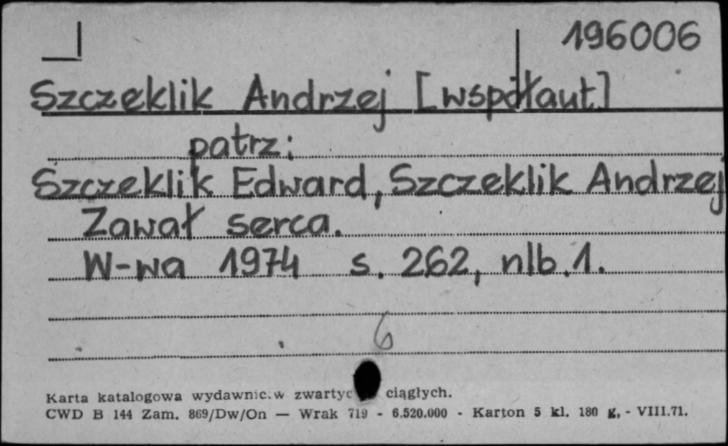 196006
Szczeklik Andrzej [współaut.]
patrz:
Szczeklik Edward, Szczeklik Andrzej
Zawał serca.
W-wa 1974 s. 262, nlb. 1.
6
Karta katalogowa wydawnic.w zwartyc ciągłych.
CWD B 144 Zam. 869/Dw/On — Wrak 719 - 6.520.000 - Karton 5 kl. 180 g. - VIII.71.